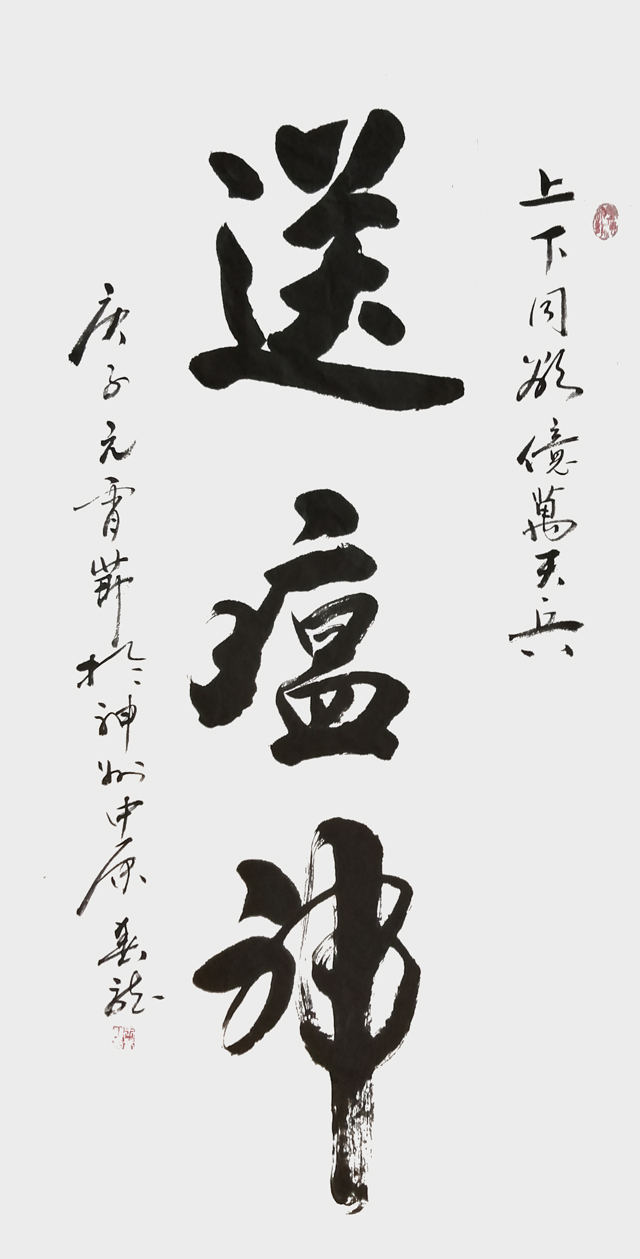 上下同欲億萬天兵
送瘟神
庚子元宵節於神州中原春龍